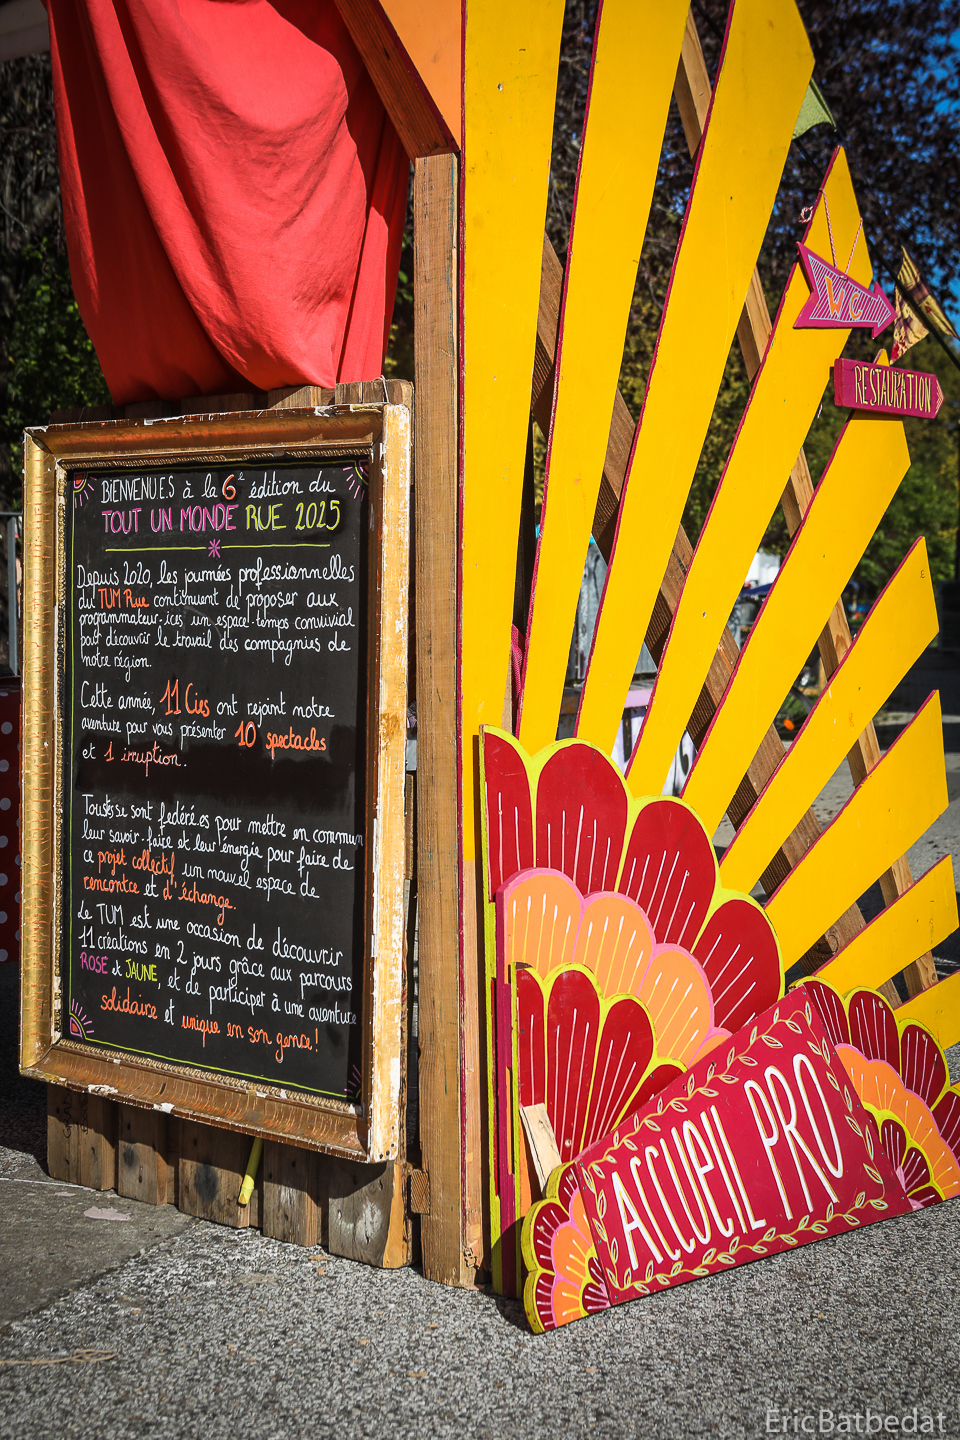 BIENVENU.E.S à la 6e édition du
TOUT UN MONDE RUE 2025
Depuis 2020, les journées professionnelles
du TUM Rue continuent de proposer aux
programmateur·ices un espace-temps convivial
pour découvrir le travail des compagnies de
notre région.
Cette année, 11 Cies ont rejoint notre
aventure pour vous présenter 10 spectacles
et 1 irruption.
Tous·tes se sont fédéré.es pour mettre en commun
leur savoir-faire et leur énergie pour faire de
ce projet collectif un nouvel espace de
rencontre et d'échange.
Le TUM est une occasion de découvrir
11 créations en 2 jours grâce aux parcours
ROSE et JAUNE, et de participer à une aventure
solidaire et unique en son genre!
WC
RESTAURATION
ACCUEIL PRO
EricBatbedat